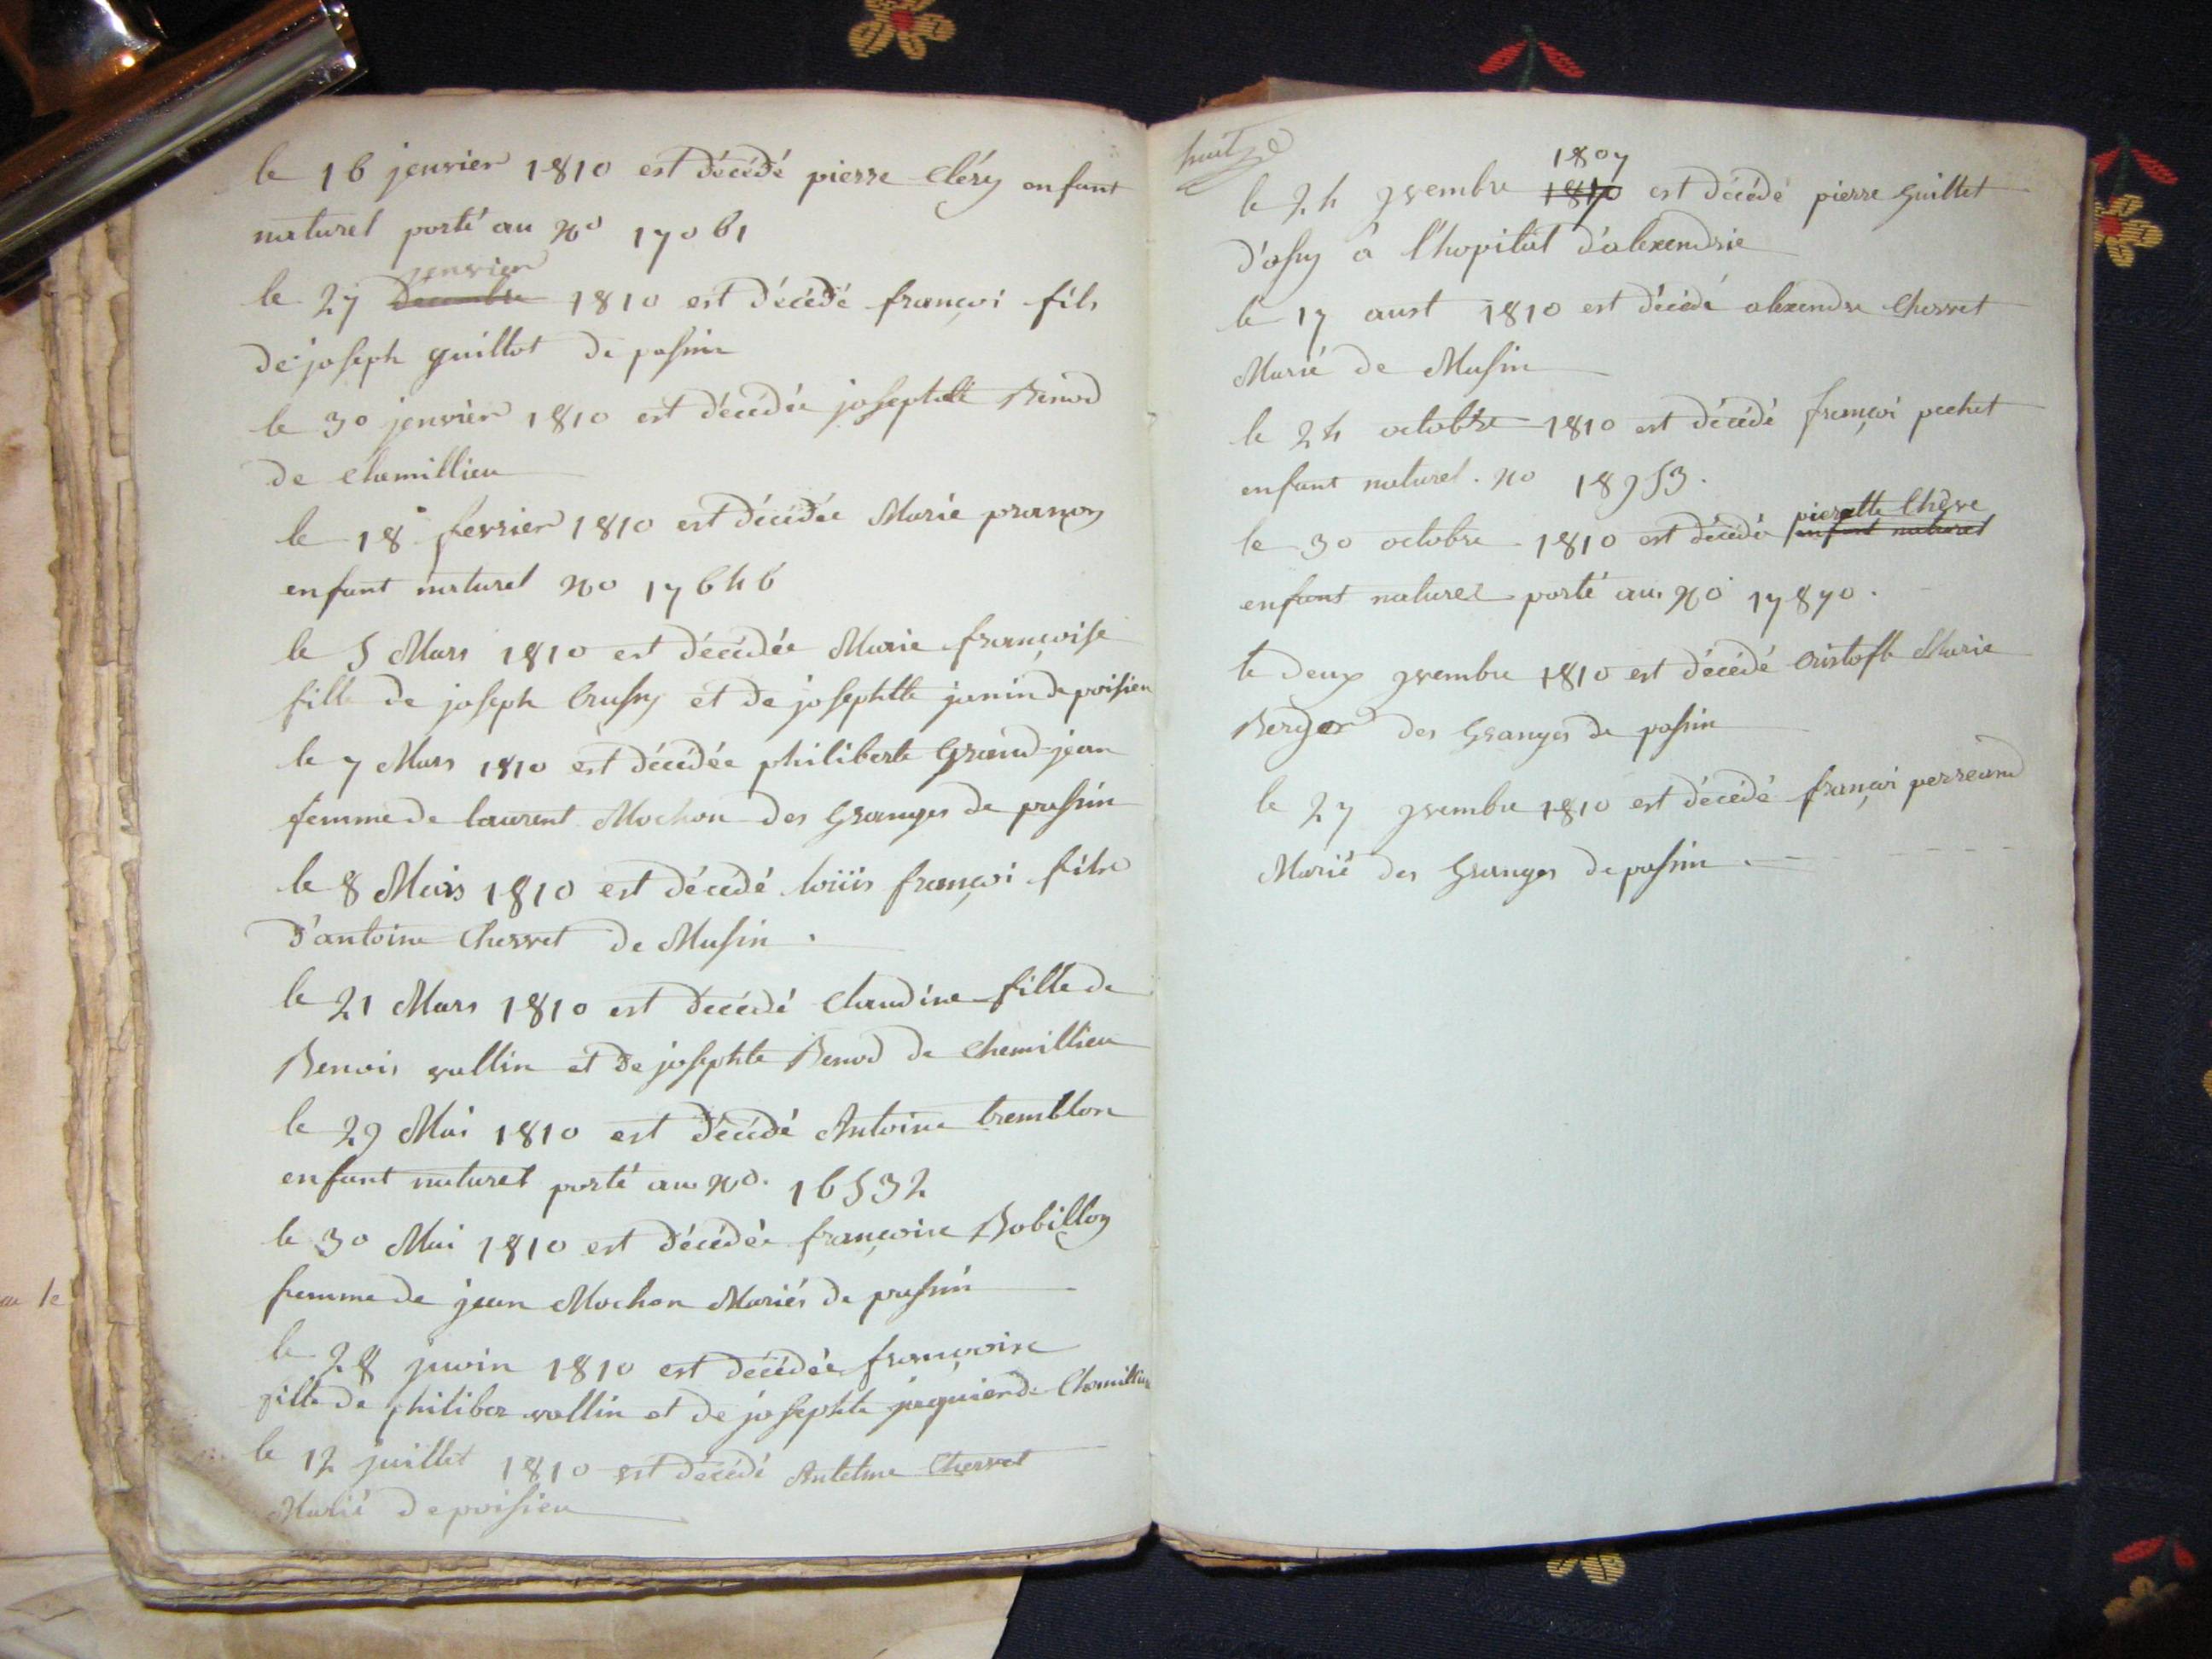 le 16 jenvier 1810 est décédé pierre Cléry enfant
naturel porté au No 17061
jenvier
le 27 Décembre 1810 est décédé françoi fils
de joseph guillot de passin
le 30 jenvier 1810 est décédée josephte Benod
de Chemillieu
le 18 fevrier 1810 est décédée Marie
enfant naturel No 17646
le 5 Mars 1810 est décédée Marie françoise
fille de joseph Crussy et de josephte janin de poisieu
le 7 Mars 1810 est décédée philiberte Grand-jean
femme de laurent Mochon des Granges de passin
le 8 Mars 1810 est décédé loüis françoi fils
d'antoine Chervet de Musin.
le 21 Mars 1810 est décédé Claudine fille de
Benois vallin et de josephte Benod de Chemillieu
le 29 Mai 1810 est décédé Antoine tremblon
enfant naturel porté au No. 16532
le 30 Mai 1810 est décédée françoise Bobillon
femme de jean Mochon Mariés de passin
le 28 jiuoin 1810 est décédée françoise
fille de philiber vallin et de josephte jaquier de Chemillieu
le 12 juillet 1810 est décédé Antelme Chervet
Marié de poisieu
1807
le 24 9vembre 1810 est décédé pierre Guillet
d'ossy a l'hopital d'alexendrie
le 17 aust 1810 est décédé alexendre Chervet
Marié de Musin
le 24 octobre 1810 est décédé françoi pochet
enfant naturel. No 18953.
pierette Chêvre
le 30 octobre 1810 est décédé enfant naturel
enfant naturel porté au No 17870.
le deux 9vembre 1810 est décédé Cristofle Marie
Berger des Granges de passin
le 27 9vembre 1810 est décédé françoi perreand
Marié des Granges de passin.